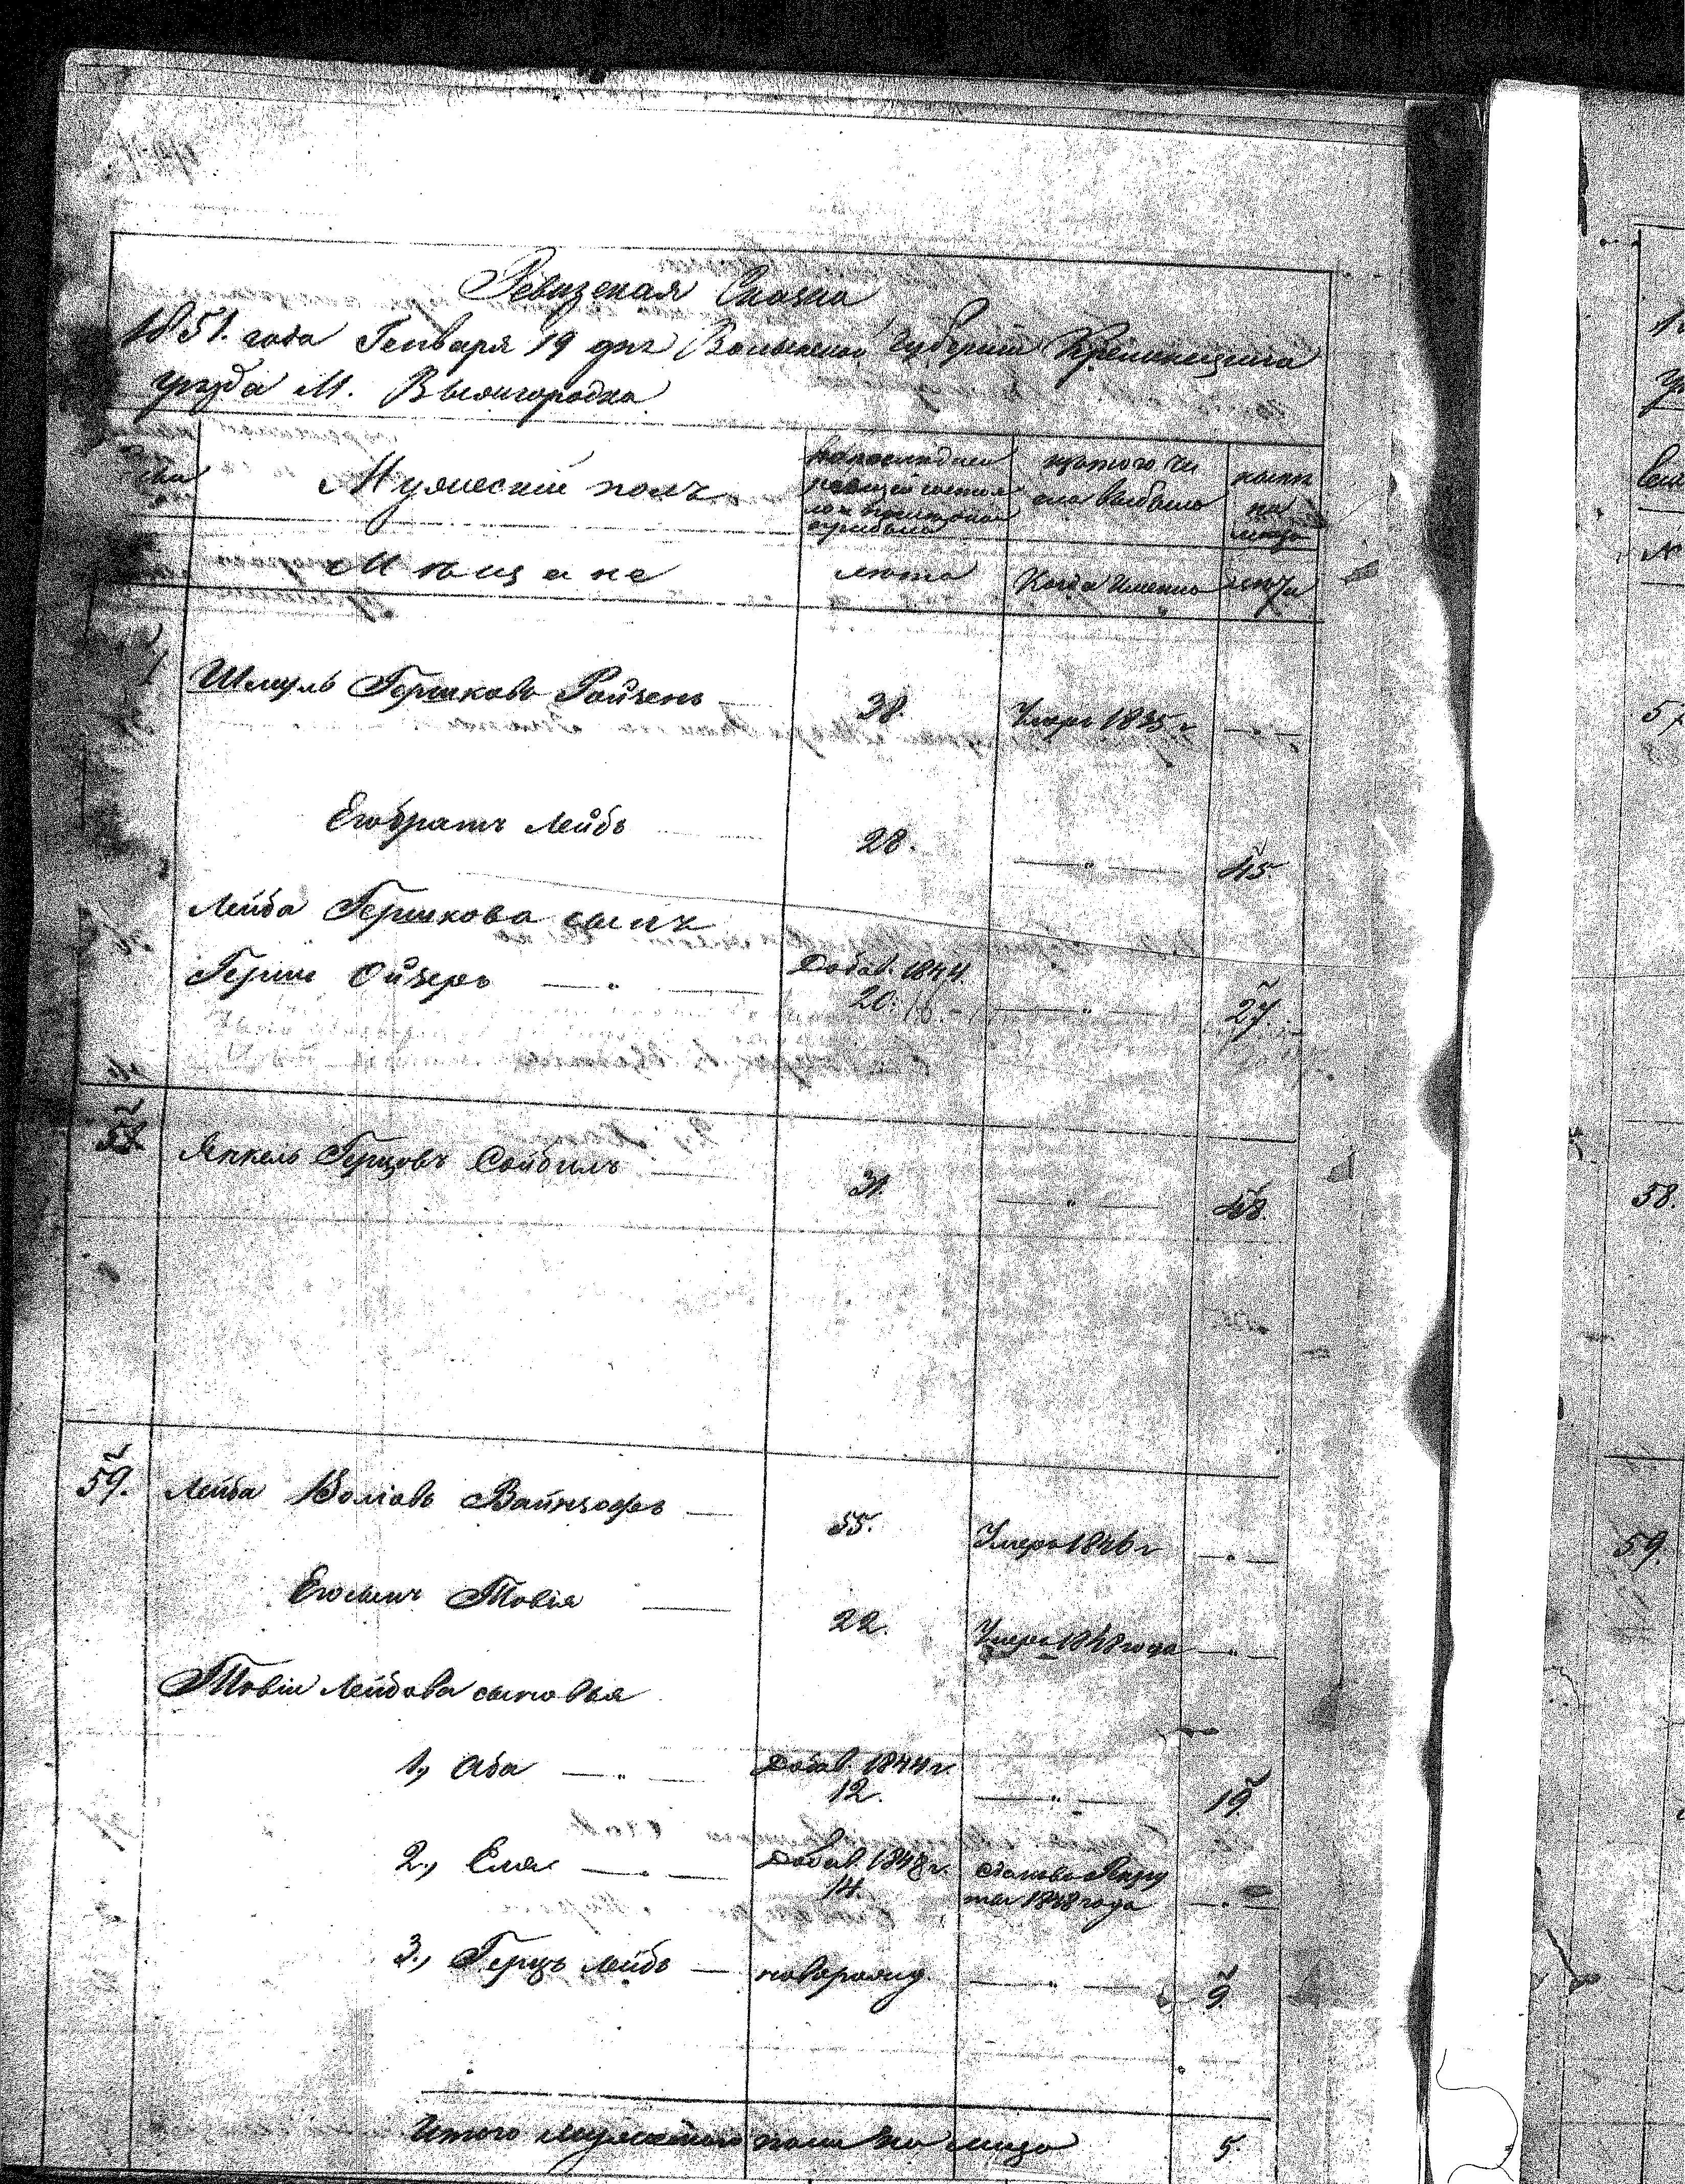 Ревизская Сказка
1851. года Генваря 19 дня Волынской Губернии Кременецкаго
уезда М. Вышгородка
Мужеский полъ
изъ того чи
сла выбыло
ныне
на
лицо
Мещане
лета
Когда именно
лета
Шмуль Гершковъ Ройзенъ
38.
Умеръ 1835 г.
Его братъ Лейбъ
28.
45
Лейба Гершкова сынъ
Герш Ойзеръ
Добав. 1844.
20.
27.
58
Янкель Герцовъ Сойбилъ
31.
48.
59.
Лейба Волювъ Вайнзофъ
55.
Умеръ 1846 г
Его сынъ Товія
22.
Умеръ 1848 года
Товіи Лейбова сыновья
1, Аба
Добав. 1844 г.
12.
19
2, Еля
Добав. 1848 г.
14.
1848 года
3, Герцъ Лейбъ
новорожд.
9.
Итого мужескаго пола на лицо
5.
57
58.
59.